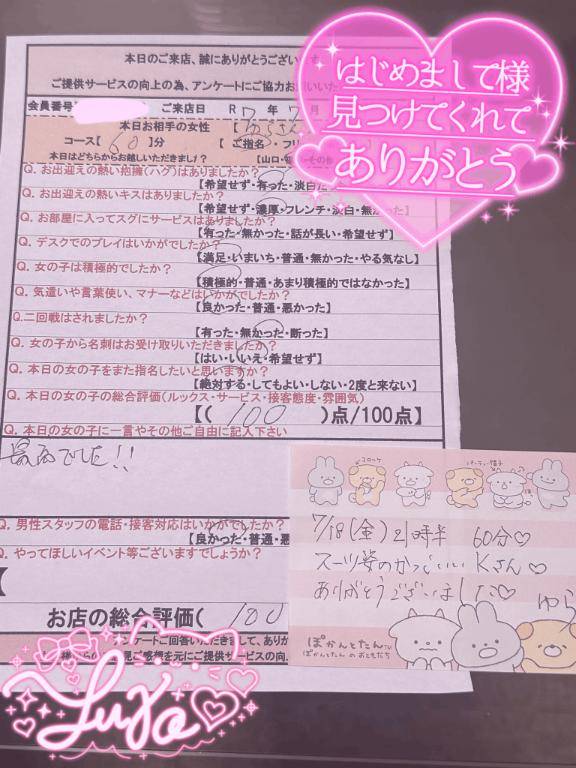 本日のご来店、誠にありがとうござい
ご提供サービスの向上の為、アンケートにご協力
はじめまして様
見つけてくれて
ありがとう
会員番号
ご来店日 R7年7月
本日お相手の女性【ゆらさん
コース【60】分
【ご指名・フリ
本日はどちらからお越しいただきまし?
Q. お出迎えの熱い抱擁(ハグ)はありましたか?
【希望せず・有った・淡白だ
Q. お出迎えの熱いキスはありましたか?
【希望せず・濃厚・フレンチ・淡白・無か
Q. お部屋に入ってスグにサービスはありましたか?
【有った・無かった・話が長い・希望せず】
Q. デスクでのプレイはいかがでしたか?
【満足・いまいち・普通・無かった・やる気なし】
Q. 女の子は積極的でしたか?
【積極的・普通・あまり積極的ではなかった】
Q. 気遣いや言葉使い、マナーなどはいかがでしたか?
【良かった・普通・悪かった】
Q.二回戦はされましたか?
【有った・無かった・断った】
Q. 女の子から名刺はお受け取りいただきましたか?
【はい・いいえ・希望せず】
Q. 本日の女の子をまた指名したいと思いますか?
【絶対する・してもよい・しない・2度と来ない】
Q. 本日の女の子の総合評価(ルックス・サービス・接客態度・雰囲気)
【(100)点/100点】
Q. 本日の女の子に一言やその他ご自由に記入下さい
最高でした!!
Q. 男性スタッフの電話・接客対応はいかがでしたか?
【良かった・普通・悪
Q. やってほしいイベント等ございますでしょうか?
【
お店の総合評価(100
アンケートご回答いただきまして、あり
見ご感想を元にご提供サービスの向
コロッケ
パーティー帽子
7/18(金)21時半 60分♡
スーツ姿のかっこいいKさん♡
ありがとうございました♡
ゆら
ぽかんとたん
ぽかんとたんのおともだち
Yura